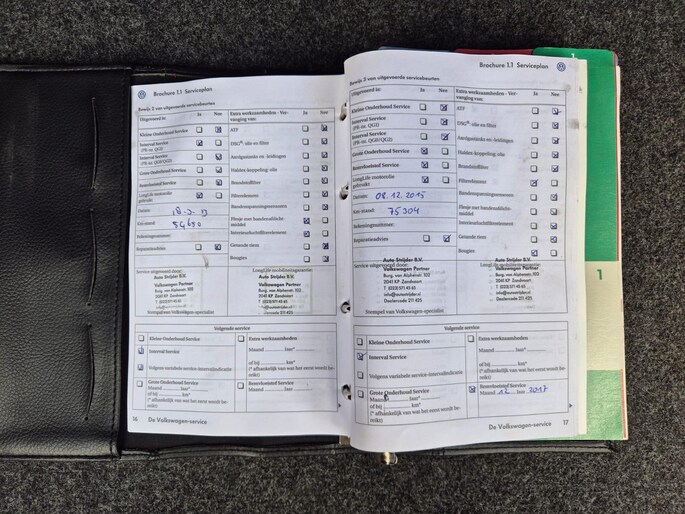 Brochure 1.1 Serviceplan
Bewijs 2 van uitgevoerde servicebeurten
Uitgevoerd is: Ja Nee
Kleine Onderhoud Service
Interval Service
(PR-nr. QG1)
Interval Service
(PR-nr. QG0/QG2)
Grote Onderhoud Service
Remvloeistof Service
LongLife motorolie
gebruikt
Datum:
Km-stand: 54690
Rekeningnummer:
Reparatieadvies
Extra werkzaamheden - Ver-
vanging van: Ja Nee
ATF
DSG®-olie en filter
Aardgastanks en -leidingen
Halden koppeling: olie
Brandstoffilter
Filterelement
Bandenspanningssensoren
Flesje met bandenafdicht-
middel
Interieurluchtfilterelement
Getande riem
Bougies
Service uitgevoerd door:
Auto Strijder B.V.
Volkswagen Partner
Burg. van Alphenstr. 102
2041 KP Zandvoort
T (023) 571 45 65
info@autostrijder.nl
Dealercode 211 425
Stempel van Volkswagen-specialist
LongLife mobiliteitsgarantie:
Auto Strijder B.V.
Volkswagen Partner
Burg. van Alphenstr. 102
2041 KP Zandvoort
T (023) 571 45 65
info@autostrijder.nl
Dealercode 211 425
Volgende service
Kleine Onderhoud Service
Interval Service
Volgens variabele service-intervalindicatie
Grote Onderhoud Service
Maand .......... Jaar*
of bij .......... km*
(* afhankelijk van wat het eerst wordt be-
reikt)
Extra werkzaamheden
Maand .......... Jaar*
of bij .......... km*
(* afhankelijk van wat het eerst wordt be-
reikt)
Remvloeistof Service
Maand .......... Jaar
16
De Volkswagen-service
Brochure 1.1 Serviceplan
Bewijs 2 van uitgevoerde servicebeurten
Uitgevoerd is: Ja Nee
Kleine Onderhoud Service
Interval Service
(PR-nr. QG1)
Interval Service
(PR-nr. QG0/QG2)
Grote Onderhoud Service
Remvloeistof Service
LongLife motorolie
gebruikt
Datum: 08.12.2015
Km-stand: 75304
Rekeningnummer:
Reparatieadvies
Extra werkzaamheden - Ver-
vanging van: Ja Nee
ATF
DSG®-olie en filter
Aardgastanks en -leidingen
Halden koppeling: olie
Brandstoffilter
Filterelement
Bandenspanningssensoren
Flesje met bandenafdicht-
middel
Interieurluchtfilterelement
Getande riem
Bougies
Service uitgevoerd door:
Auto Strijder B.V.
Volkswagen Partner
Burg. van Alphenstr. 102
2041 KP Zandvoort
T (023) 571 45 65
info@autostrijder.nl
Dealercode 211 425
Stempel van Volkswagen-specialist
Auto Strijder B.V.
Volkswagen Partner
Burg. van Alphenstr. 102
2041 KP Zandvoort
T (023) 571 45 65
info@autostrijder.nl
Dealercode 211 425
Volgende service
Kleine Onderhoud Service
Interval Service
Volgens variabele service-intervalindicatie
Grote Onderhoud Service
Maand .......... Jaar*
of bij .......... km*
(* afhankelijk van wat het eerst wordt be-
reikt)
Extra werkzaamheden
Maand .......... Jaar*
of bij .......... km*
(* afhankelijk van wat het eerst wordt be-
reikt)
Remvloeistof Service
Maand 12 Jaar 2017
De Volkswagen-service
17
1